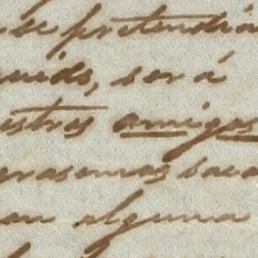 se pretendia
uido, será
estros amigos
erasemos saca
an alguna